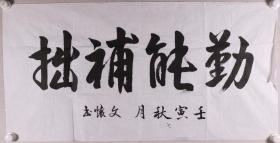 勤能補拙
壬寅秋月 文懷玉